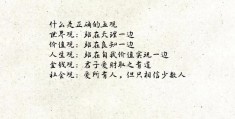 什么是正确的五观
世界观：站在天理一边
价值观：站在良知一边
人生观：站在自我价值实现一边
金钱观：君子爱财取之有道
社会观：爱所有人，但只相信少数人